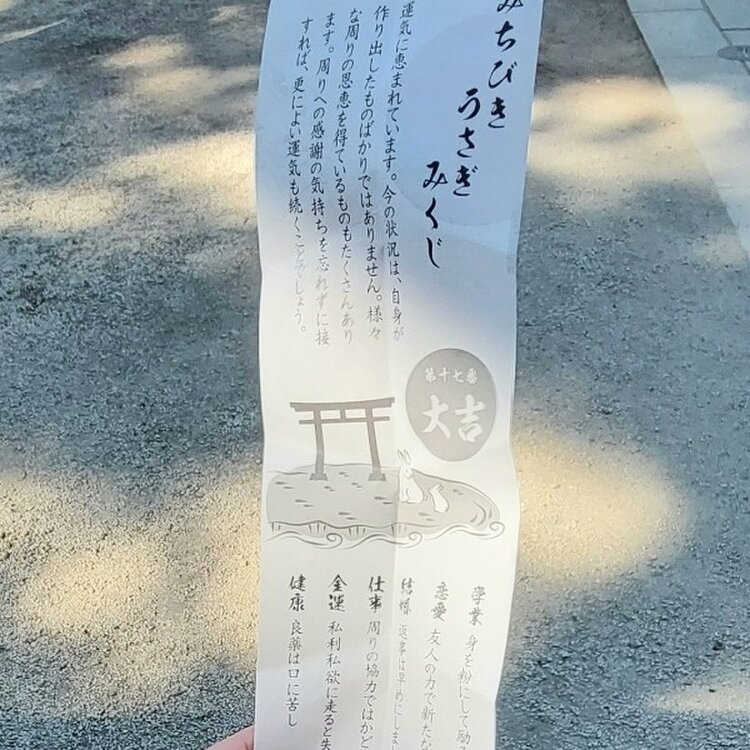 みちびき
うさぎ
みくじ
運気に恵まれています。今の状況は、自身が
作り出したものばかりではありません。様々
な周りの恩恵を得ているものもたくさんあり
ます。周りへの感謝の気持ちを忘れずに接
すれば、更によい運気も続くことでしょう。
第十七番
大吉
学業 身を粉にして励
恋愛 友人の力で新たな
結婚 返事は早めにしま
仕事 周りの協力ではかど
金運 私利私欲に走ると失
健康 良薬は口に苦し